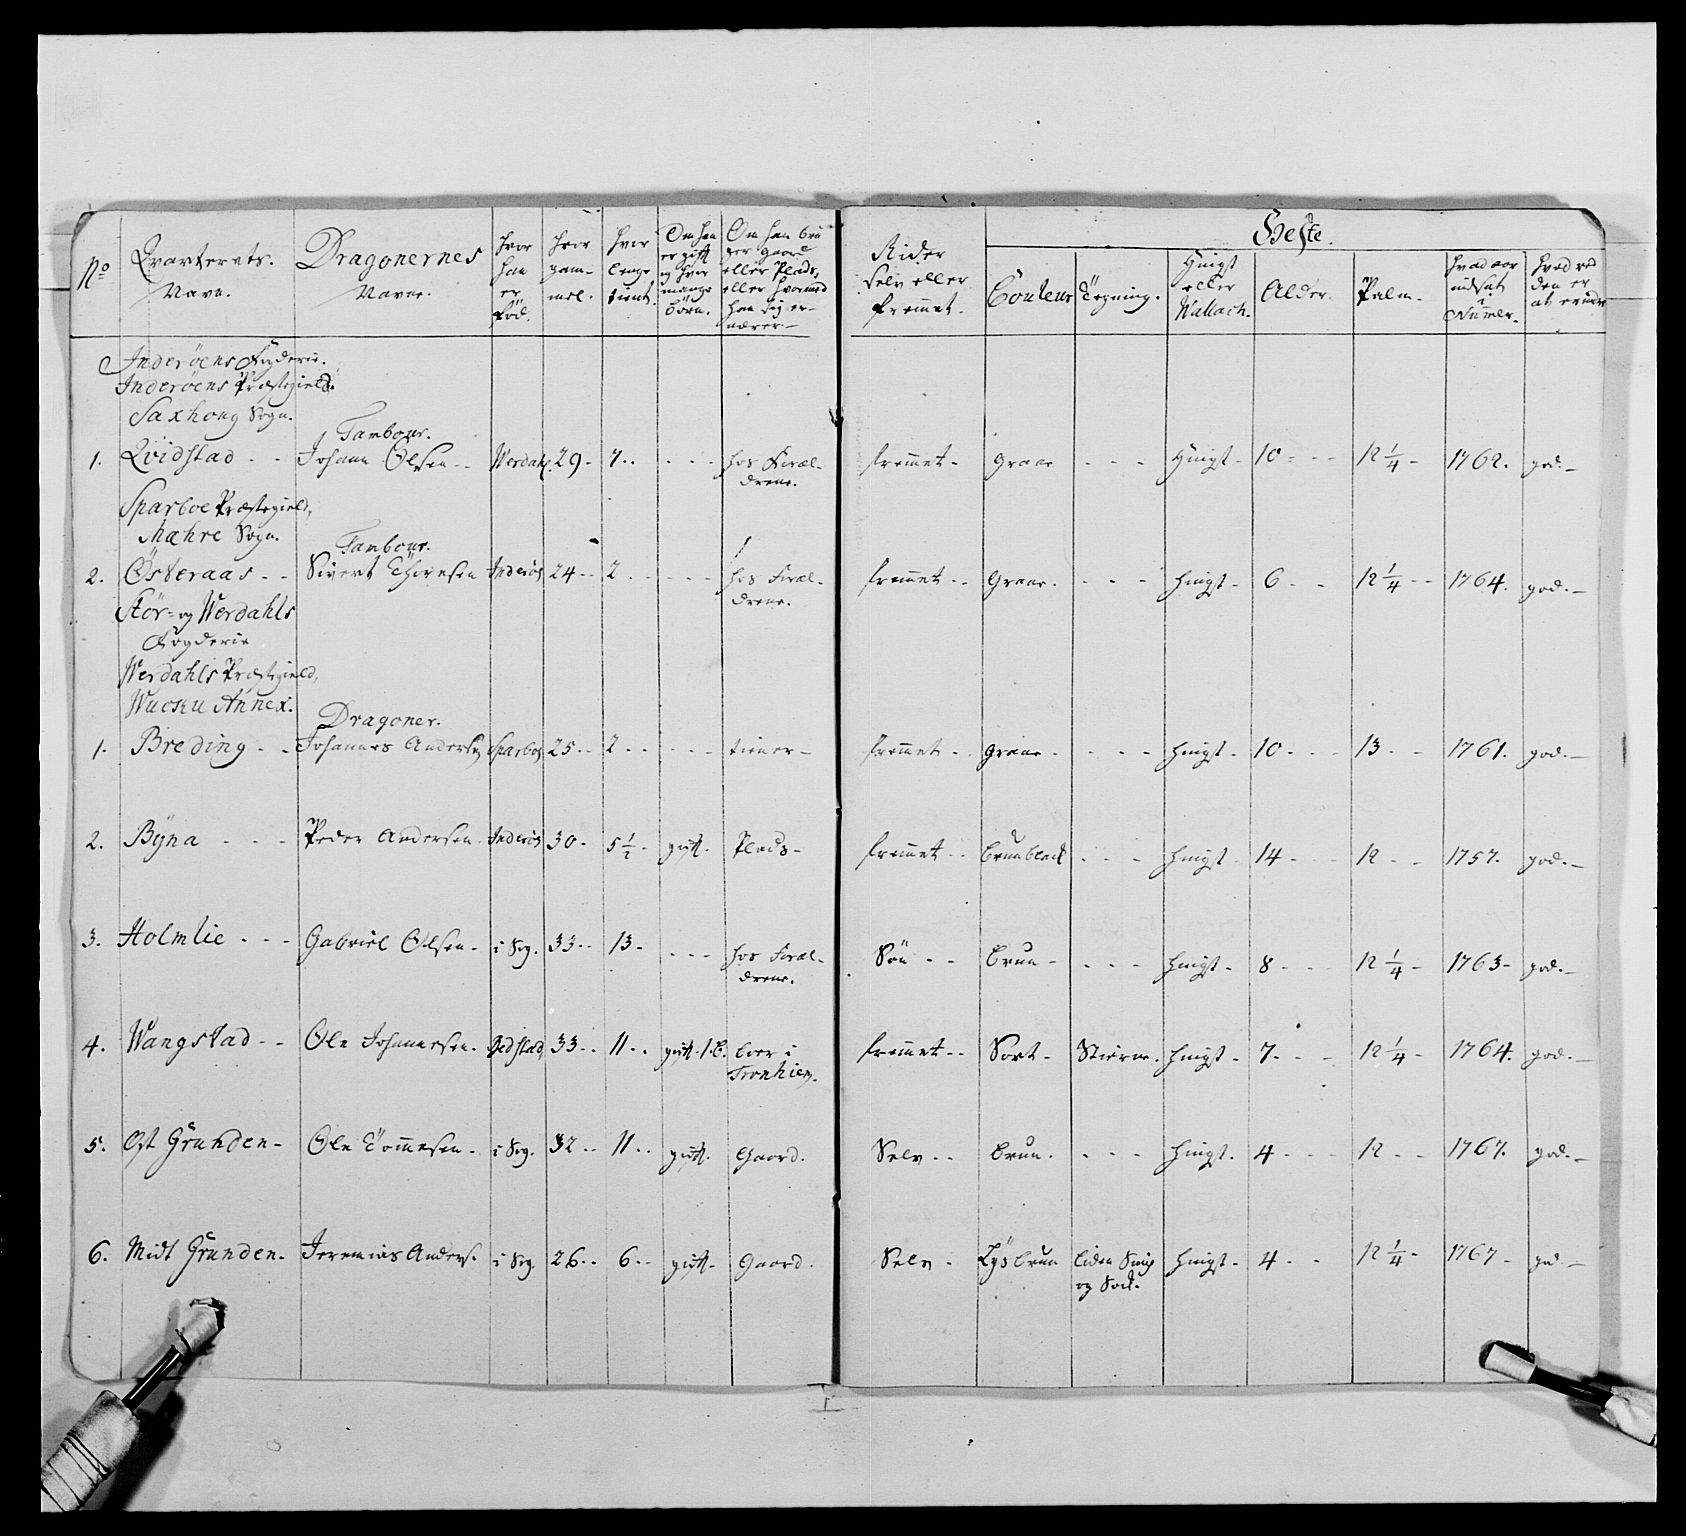 Heste.
No Qvarterets Navn. Dragonernes Navne. hvor han er Föd. hvor gam- mel. hvor lenge tient. Om han er gift og hvor mange börn. Om han bru ger gaard eller Plads, eller hvormed han sig er- nærer. Rider selv eller fremmet. Couleur Tegning. Hingst eller Wallach. Alder. Palm. hvad aar indsat i Numer. hvad ved den er at erindre
Inderöens Fogderie.
Inderöens Præstegield.
Saxhoug Sogn.
Tambour.
1. Qvidstad - - Johann Olsen - - Werdahl. 29 - 7 - - - - - hos Foræl- drene. fremmet - graae - - - Hingst - 10 - - - 12 1/4 - 1762. god. -
Sparboe Præstegield,
Mæhre Sogn.
Tambour.
2. Österaas - - Sivert Thoresen Inderöe 24 - - 2 - - - - - hos Foræl- drene. fremmet - - Graae. - - - hingst - 6 - - 12 1/4 - - 1764. god. -
Stör- og Werdahls
Fogderie
Werdahls Præstegield,
Wuoku Annex.
Dragoner.
1. Breding - - Johannes Anders. Sparboe 25 - - 2 - - - - - tiener - fremmet - - graae - - - - hingst - 10 - - - 13 - - 1761. god. -
2. Byna - - - Peder Andersen Inderöe 30 - 5 1/2 - gift. Plads - fremmet - - brunblack - - - hingst - 14 - - - 12 - - 1757. god. -
3. Holmlie - - - Gabriel Olsen - i Sog. 33 - - 13 - - - - hos Foræl- drene. Sön - - brun - - - - hingst - 8 - - - 12 1/4 - 1763 - god. -
4. Wangstad - - Ole Johannesen. 33 - - 11 - - gift. 1. b. boer i Tronhiem. fremmet - - Sort - Stierne. hingst - 7 - - - 12 1/4 - 1764. god. -
5. Öst Grunden - Ole Tommesen - i Sog. 32 - - 11 - - gift. Gaard. Selv - - brun. - - - hingst. 4 - - - 12 - - 1767. god. -
6. Midt Grunden - Jeremias Anders. i Sog. 26 - - 6 - - gift - Gaard. Selv - Lysbrun liden Snip og Sock. hingst - 4 - - 12 1/4 - 1767 - god. -